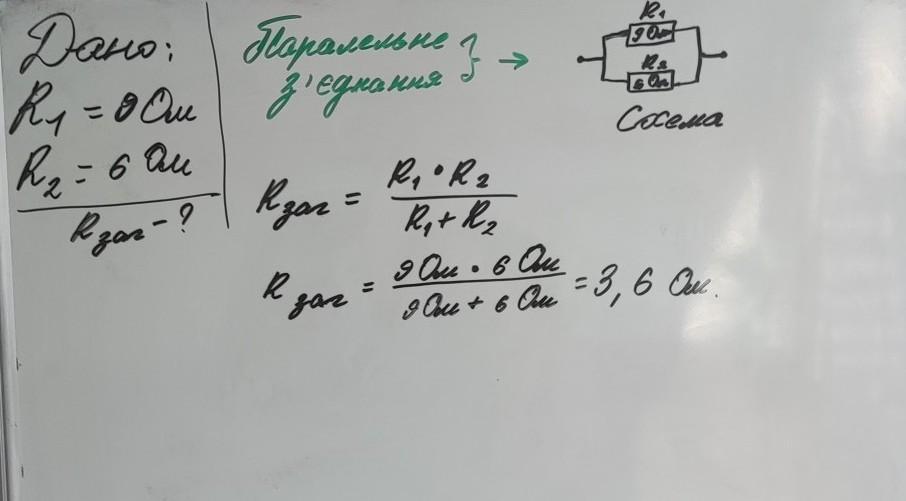 Дано:
R₁ = 9 Ом
R₂ = 6 Ом
Rзаг - ?
Паралельне
з'єднання } →
R₁
9 Ом
R₂
6 Ом
Схема
Rзаг = R₁ • R₂ / R₁ + R₂
Rзаг = 9 Ом • 6 Ом / 9 Ом + 6 Ом = 3,6 Ом.